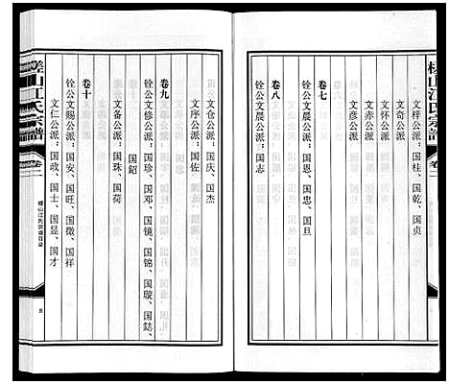 文祥公派：国桂、国乾、国贞
文奇公派
文怀公派
文赤公派
文彦公派
卷七
铨公文晨公派：国恩、国忠、国旦
卷八
铨公文晨公派：国志
文仓公派：国庆、国杰
文序公派：国佐
卷九
铨公文修公派：国珍、国邓、国镜、国锦、国璇、国喆、
国韶
文备公派：国珠、国荷
卷十
铨公文赐公派：国安、国旺、国徵、国祥
文仁公派：国政、国士、国显、国才
山江氏宗谱
卷二